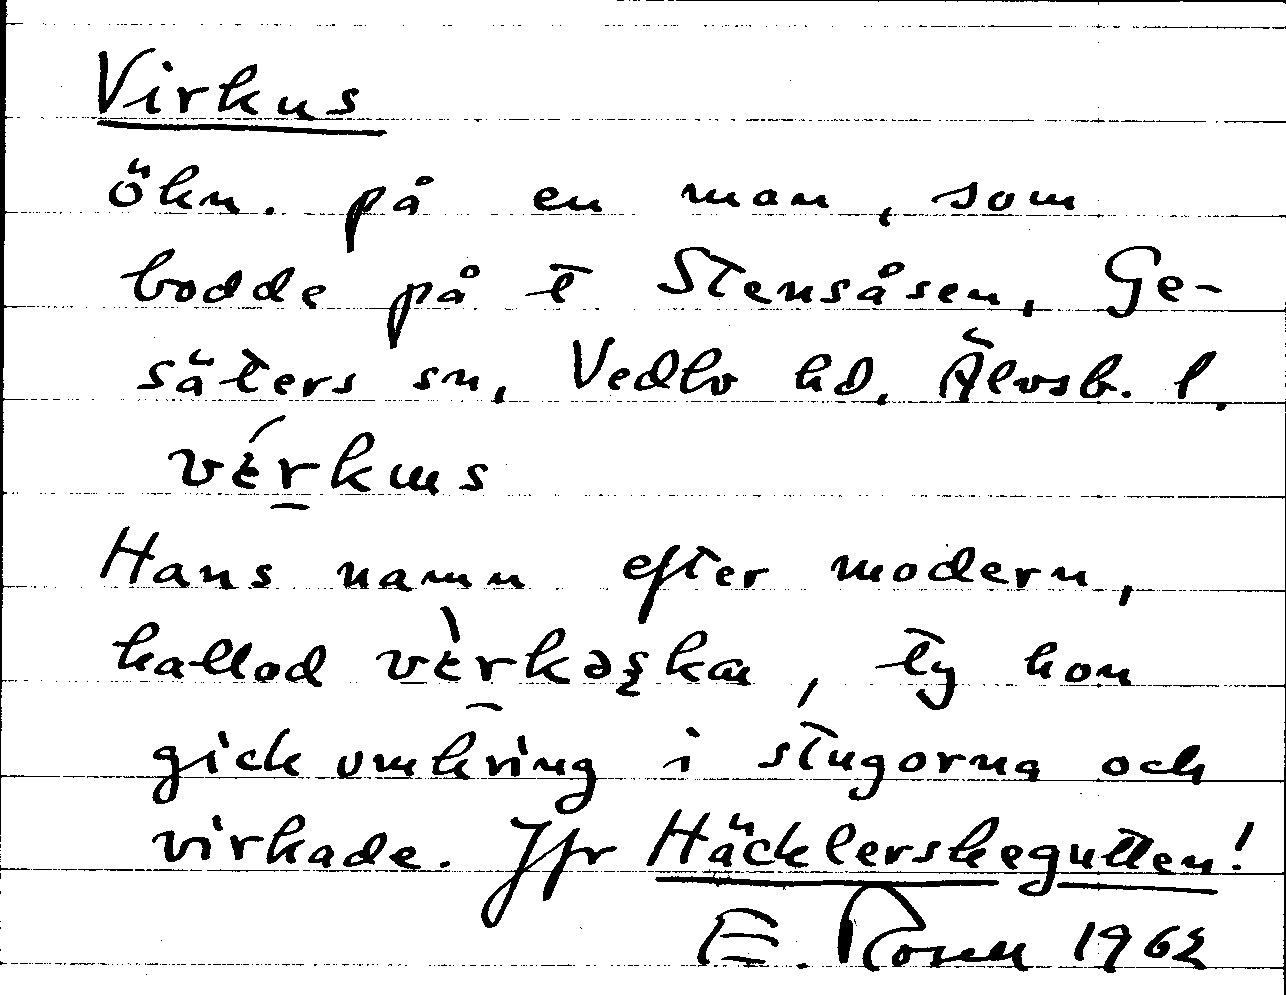 Virkus
ökn. på en man, som
bodde på t Stensåsen, Ge-
säters sn, Vedbo hd, Älvsb. l.
vɛ́rkɯs
Hans namn efter modern,
kallad vɛ̀rkəʂka, ty hon
gick omkring i stugorna och
virkade. Jfr Häcklerskegutten!
E. Rosell 1962